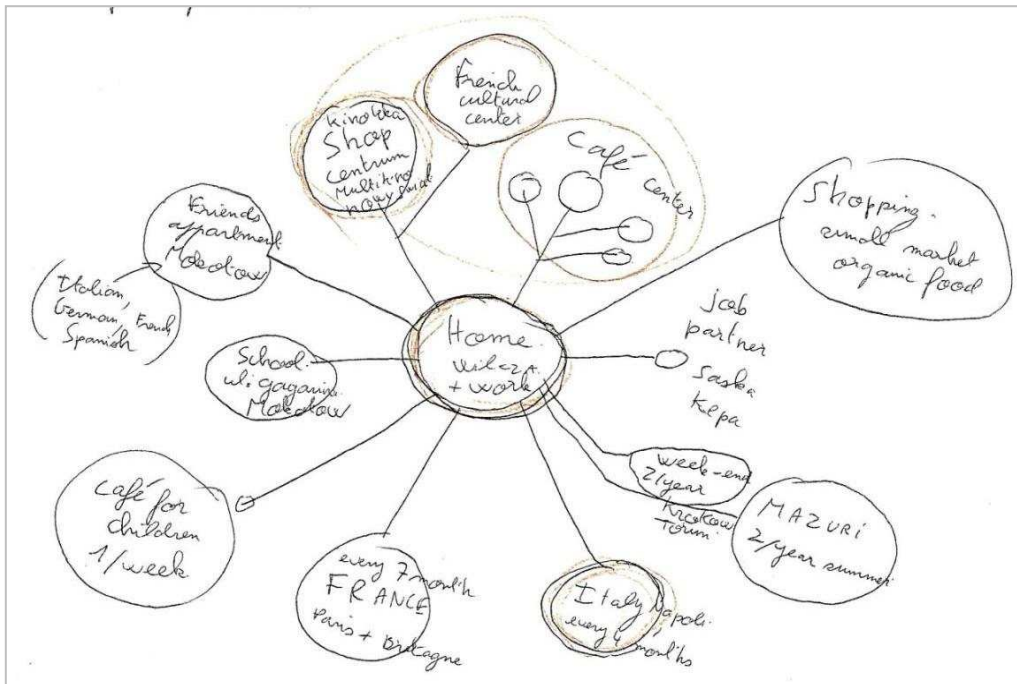 French
cultural
center
Kinoteka
Shop
centrum
Multikino
nowy świat
Café center
Shopping.
small market
organic food
Friends
appartment
Mokotow
(Italian,
German, French
Spanish)
Home.
wilcza.
+ work
job
partner
saska
Kepa
School.
ul. gagarina
Mokotow
week-end
2/year
Krakow
Torun
MAZURI
2/year summer
Café for
children
1/week
every 7 month
FRANCE
Paris + Bretagne
Italy Napoli.
every 4 months